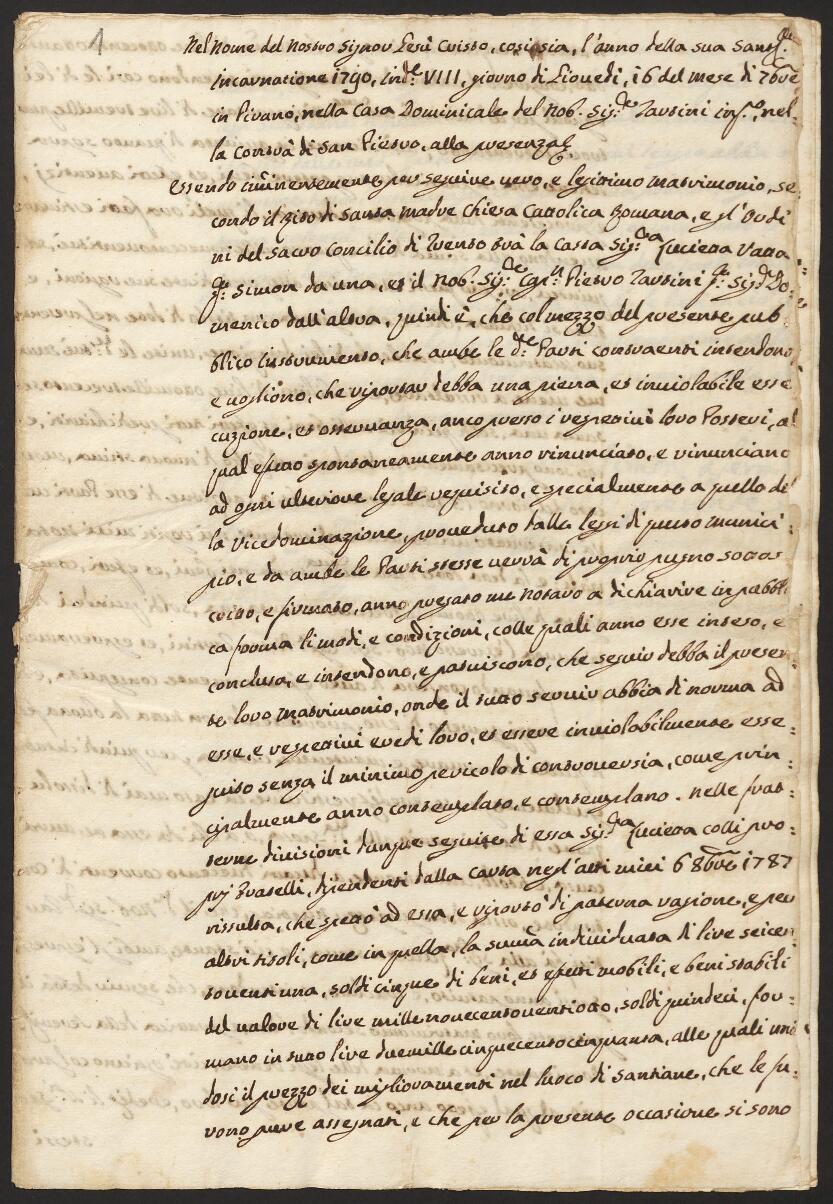 1
Nel Nome del Nostro Signor Gesù Cristo, cosi sia, l'anno della sua Santa
incarnatione 1790, ind.e VIII, giorno di Giovedi, 16 del mese di 7bre
in Pirano, nella Casa Dominicale del Nob. Sig.r Zarotini inf.o, nel-
la contrà di San Pietro, alla presenza
Essendo imminentemente per seguire vero, e legitimo matrimonio, se-
condo il Rito di Santa Madre Chiesa Cattolica Romana, e gl'Ordi
ni del Sacro Concilio di Trento trà la Casta Sig.ra Lucietta
q.m Simon da una, et il Nob. Sig.r Pietro q.m Sig.r Do-
menico dall'altra, quindi è, che col mezzo del presente pub-
blico Instrumento, che ambe le d.te Parti contraenti intendono,
e vogliono, che riportar debba una piena, et inviolabile esse
cuzione, et osservanza, anco presso i respetivi loro Posteri, al
qual efetto spontaneamente anno rinunciato, e rinunciano
ad ogni ulteriore legale requisito, e specialmente a quello del
la Vicedominazione, proveduto dalle leggi di questo Munici-
pio, e da ambe le Parti stesse verrà di proprio pugno sottos
critto, e firmato, anno pregato me Nodaro a dichiarire in pubbli
ca forma li modi, e condizioni, colle quali anno esse inteso, e
concluso, e intendono, e patuiscono, che seguir debba il presen
te loro Matrimonio, onde il tutto servir abbia di norma ad
esse, e respetivi eredi loro, et essere inviolabilmente esse-
quito senza il minimo pericolo di controversia, come prin-
cipalmente anno contemplato, e contemplano. Nelle frat-
terne divisioni dunque seguite di essa Sig.ra Lucietta colli pro-
prj Fratelli, dipendenti dalla carta negl'atti miei 6 8bre 1787
rissulta, che spettò ad essa, e riportò di paterna ragione, e per
altri titoli, come in quella, la summa individuata di lire seicen
toventiuna, soldi cinque di beni, et efetti mobili, e beni stabili
del valore di lire mille novecentoventiotto, soldi quindeci, for-
mano in tutto lire duemille cinquecentocinquanta, alle quali unen
dosi il prezzo dei miglioramenti nel luoco di Santiane, che le fu-
rono pure assegnati, e che per la presente occasione si sono